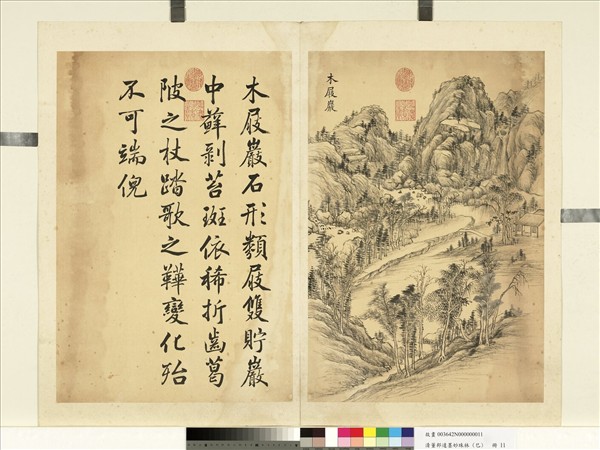 木屐巖
木屐巖石形類屐雙貯巖
中蘚剝苔斑依稀折齒葛
陂之杖踏歌之鞾變化殆
不可端倪
故畫 003642N000000011
清董邦達墨妙珠林（巳） 冊 11